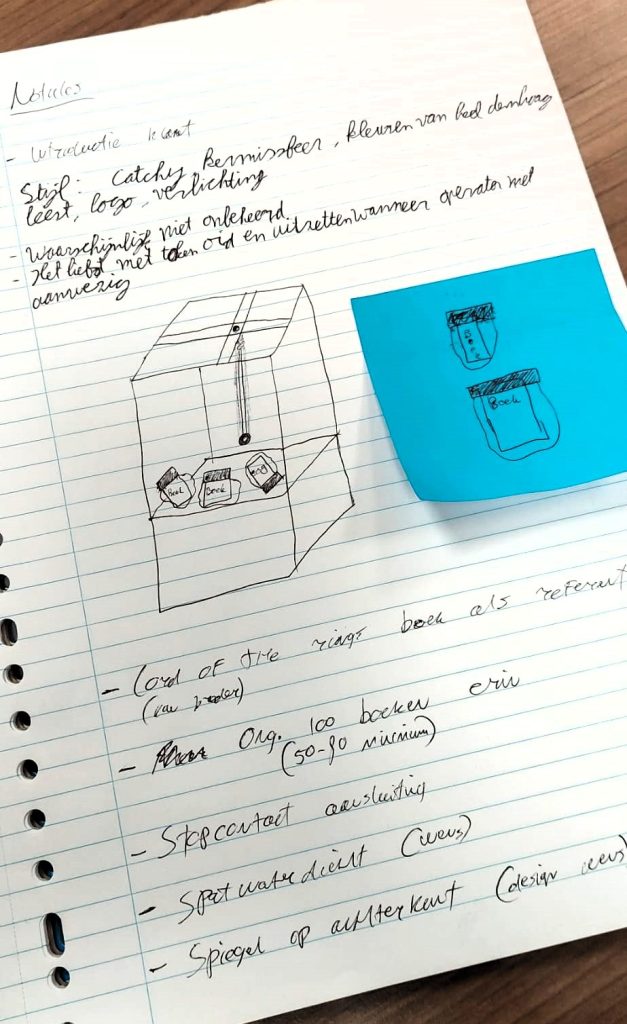 Notules
- Introductie klant
Stijl: Catchy kermissfeer, kleuren van heel denhaag
leest, logo, verlichting
- Waarschijnlijk niet onbeheerd
- Het liefst met token oid en uitzetten wanneer operator niet
aanwezig
Boek
Boek
Boek
Boek
Boek
- Lord of the rings boek als referent
(van)
- Ong. 100 boeken erin
(50-90 minimum)
- Stopcontact aansluiting
- Spatwaterdicht (wens)
- Spiegel op achterkant (design wens)